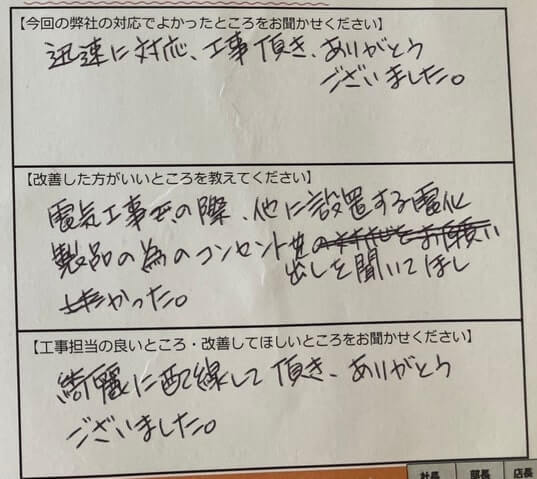 【今回の弊社の対応でよかったところをお聞かせください】
迅速に対応、工事頂き、ありがとう
ございました。
【改善した方がいいところを教えてください】
電気工事の際、他に設置する電化
製品の為のコンセント
出しを聞いてほし
かった。
【工事担当の良いところ・改善してほしいところをお聞かせください】
綺麗に配線して頂き、ありがとう
ございました。
社長 部長 店長